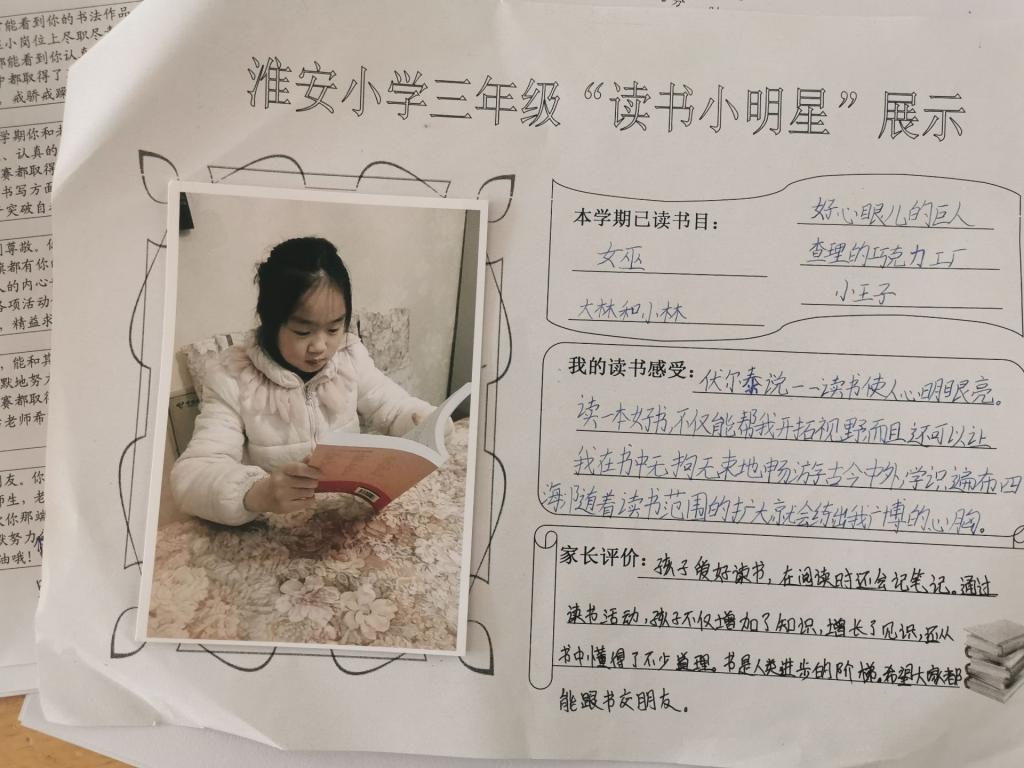 淮安小学三年级“读书小明星”展示
本学期已读书目：
好心眼儿的巨人
女巫
查理的巧克力工厂
大林和小林
小王子
我的读书感受：伏尔泰说——读书使人心明眼亮。
读一本好书，不仅能帮我开拓视野而且还可以让
我在书中无拘无束地畅游古今中外，学识遍布四
海随着读书范围的扩大京就会练出我广博的心胸。
家长评价：孩子爱好读书，在阅读时还会记笔记。通过
读书活动，孩子不仅增加了知识，增长了见识，还从
书中懂得了不少道理。书是人类进步的阶梯。希望大家都
能跟书交朋友。
能看到你的书法作品
小岗位上尽职尽
都能看到你认真
中都取得了
戒骄戒躁
学期你和老
、认真的
赛都取得
书写方面
突破自
尊敬。你
都有你的
人的内心
各项活动
，精益求
，能和其
默地努力
赛都取得
老师希
朋友。你
师生，老
你那端
默努力
油哦！